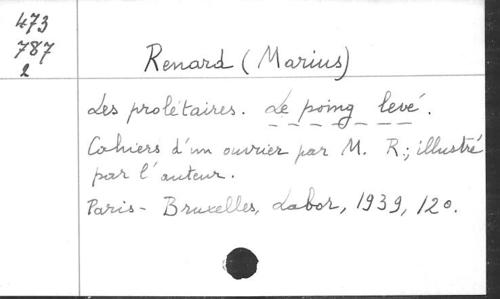 473
787
2
Renard (Marius)
Les prolétaires. Le poing levé.
Cahiers d'un ouvrier par M. R.; illustré
par l'auteur.
Paris - Bruxelles, Labor, 1939, 12o.